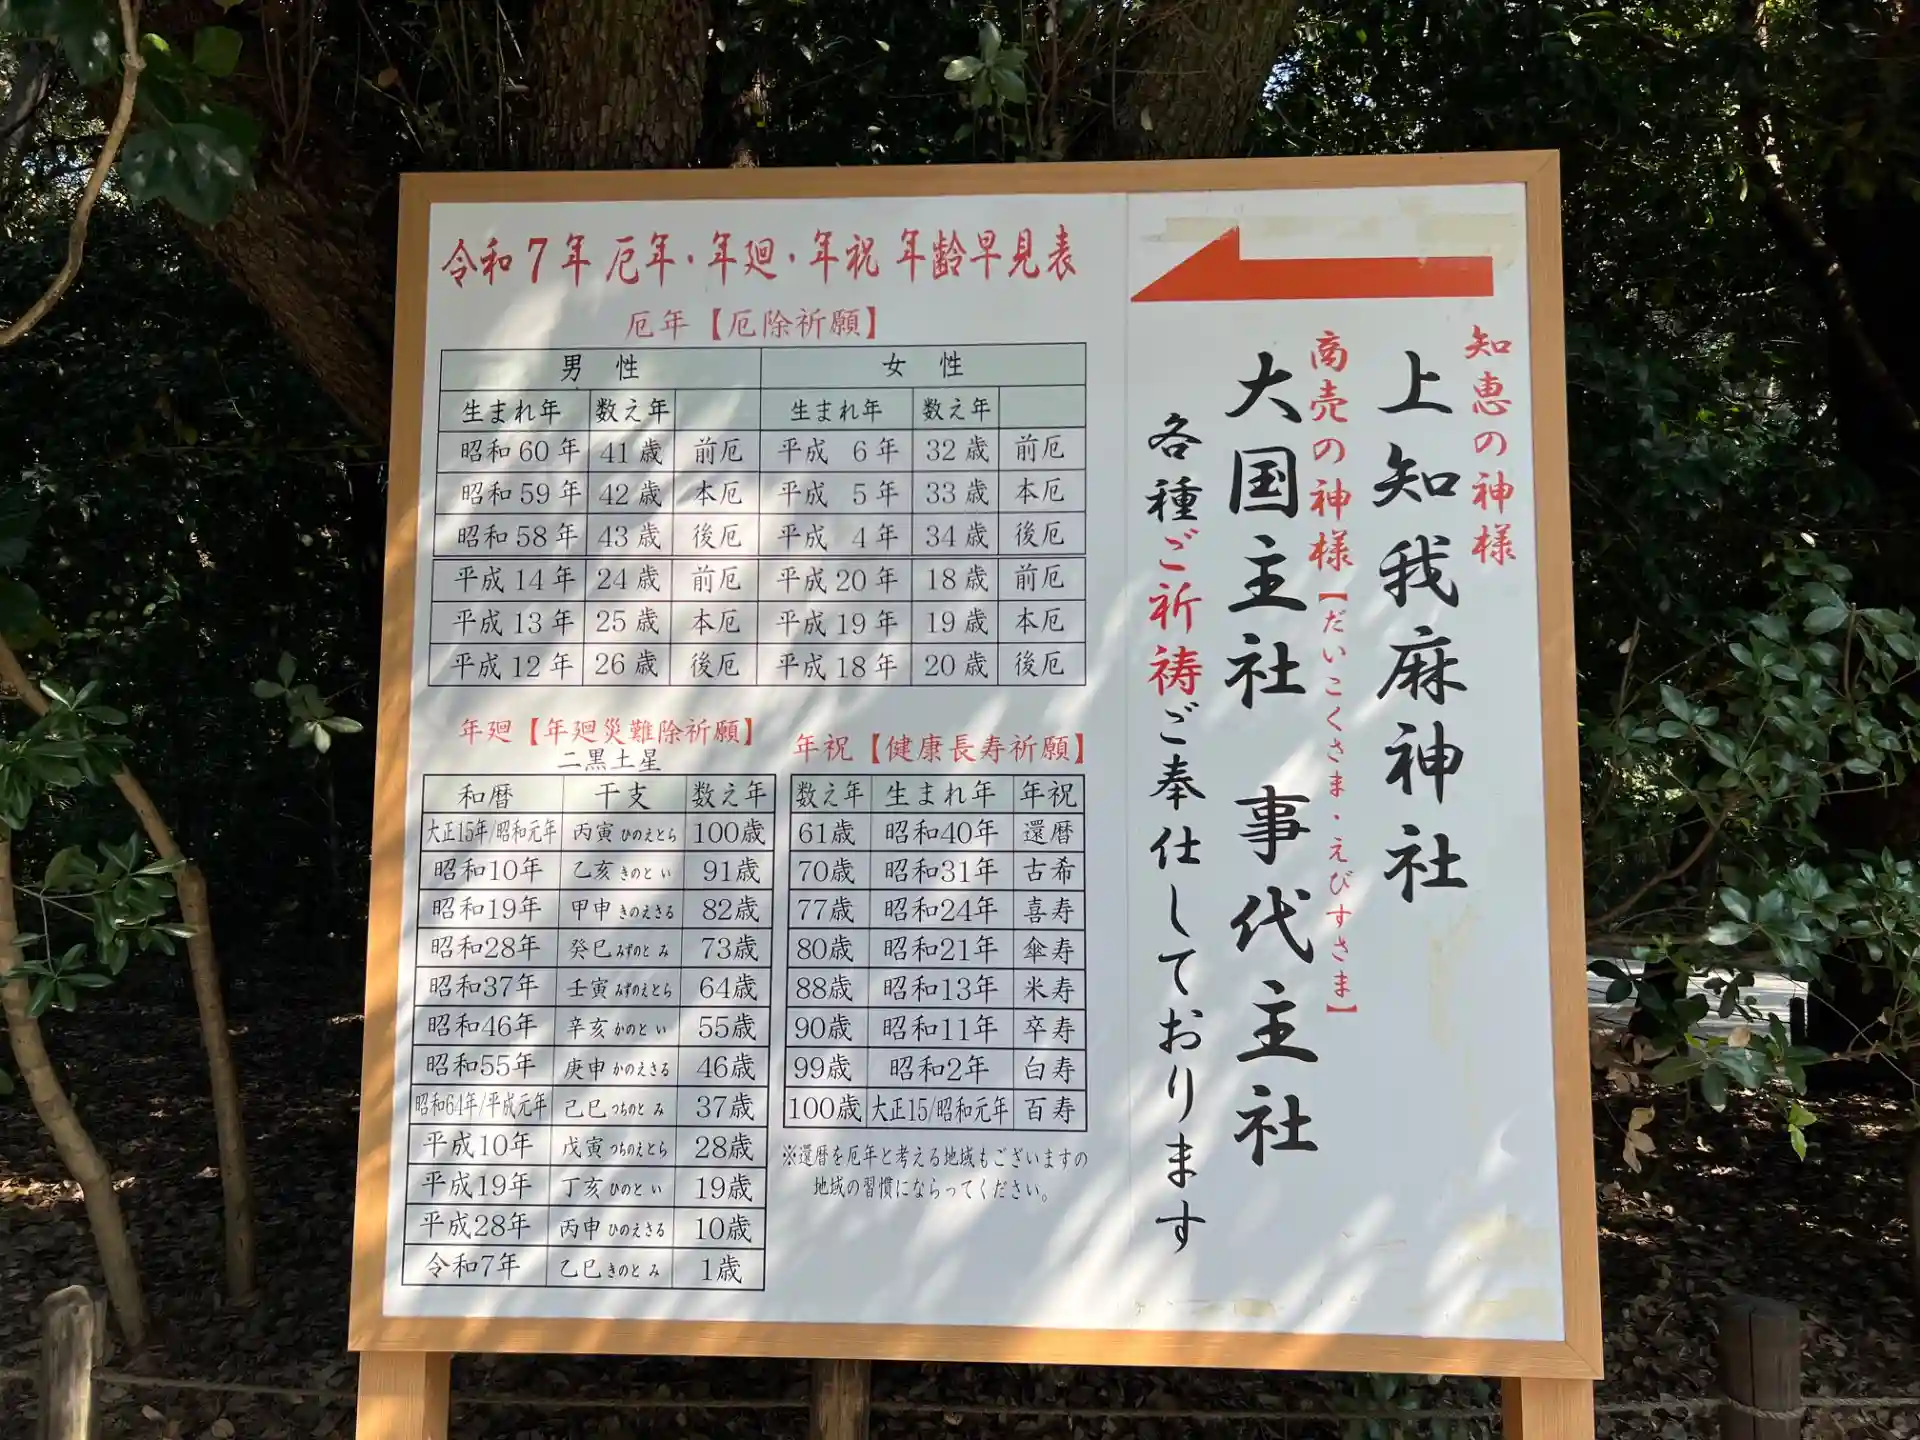 知恵の神様
上知我麻神社
商売の神様【だいこくさま・えびすさま】
大国主社 事代主社
各種ご祈祷ご奉仕しております
令和7年 厄年・年廻・年祝 年齢早見表
厄年【厄除祈願】
男性 女性
生まれ年 数え年 生まれ年 数え年
昭和60年 41歳 前厄 平成 6年 32歳 前厄
昭和59年 42歳 本厄 平成 5年 33歳 本厄
昭和58年 43歳 後厄 平成 4年 34歳 後厄
平成14年 24歳 前厄 平成20年 18歳 前厄
平成13年 25歳 本厄 平成19年 19歳 本厄
平成12年 26歳 後厄 平成18年 20歳 後厄
年廻【年廻災難除祈願】
二黒土星
和暦 干支 数え年
大正15年/昭和元年 丙寅 ひのえとら 100歳
昭和10年 乙亥 きのと い 91歳
昭和19年 甲申 きのえさる 82歳
昭和28年 癸巳 みずのと み 73歳
昭和37年 壬寅 みずのえとら 64歳
昭和46年 辛亥 かのと い 55歳
昭和55年 庚申 かのえさる 46歳
昭和64年/平成元年 己巳 つちのと み 37歳
平成10年 戊寅 つちのえとら 28歳
平成19年 丁亥 ひのと い 19歳
平成28年 丙申 ひのえさる 10歳
令和7年 乙巳 きのと み 1歳
年祝【健康長寿祈願】
数え年 生まれ年 年祝
61歳 昭和40年 還暦
70歳 昭和31年 古希
77歳 昭和24年 喜寿
80歳 昭和21年 傘寿
88歳 昭和13年 米寿
90歳 昭和11年 卒寿
99歳 昭和2年 白寿
100歳 大正15/昭和元年 百寿
※還暦を厄年と考える地域もございますの
地域の習慣にならってください。